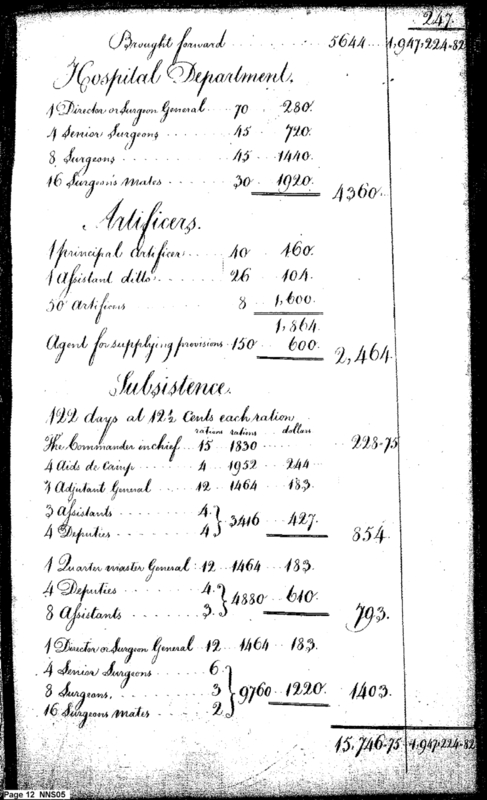 247.
Brought forward 5644 1,947,224-82
Hospital Department.
1 Director or Surgeon General 70 280.
4 Senior Surgeons 45 720.
8 Surgeons 45 1440.
16 Surgeon's Mates 30 1920. 4360.
Artificers.
1 principal artificer 40 160.
1 Assistant ditto 26 104.
50 Artificers 8 1,600.
1,864.
Agent for supplying provisions 150 600. 2,464.
Subsistence.
122 days at 12½ Cents each ration
rations rations dollars
The Commander in chief 15 1830 228-75
4 Aids de Camp 4 1952 244
1 Adjutant General 12 1464 183.
3 Assistants 4.
4 Deputies 4 } 3416 427. 854.
1 Quarter master General 12 1464 183.
4 Deputies 4.
8 Assistants 3. } 4880 610. 793.
1 Director or Surgeon General 12 1464 183.
4 Senior Surgeons 6.
8 Surgeons, 3
16 Surgeons Mates 2 } 9760 1220. 1403.
15,746-75 1,947,224-82
Page 12 NNS05